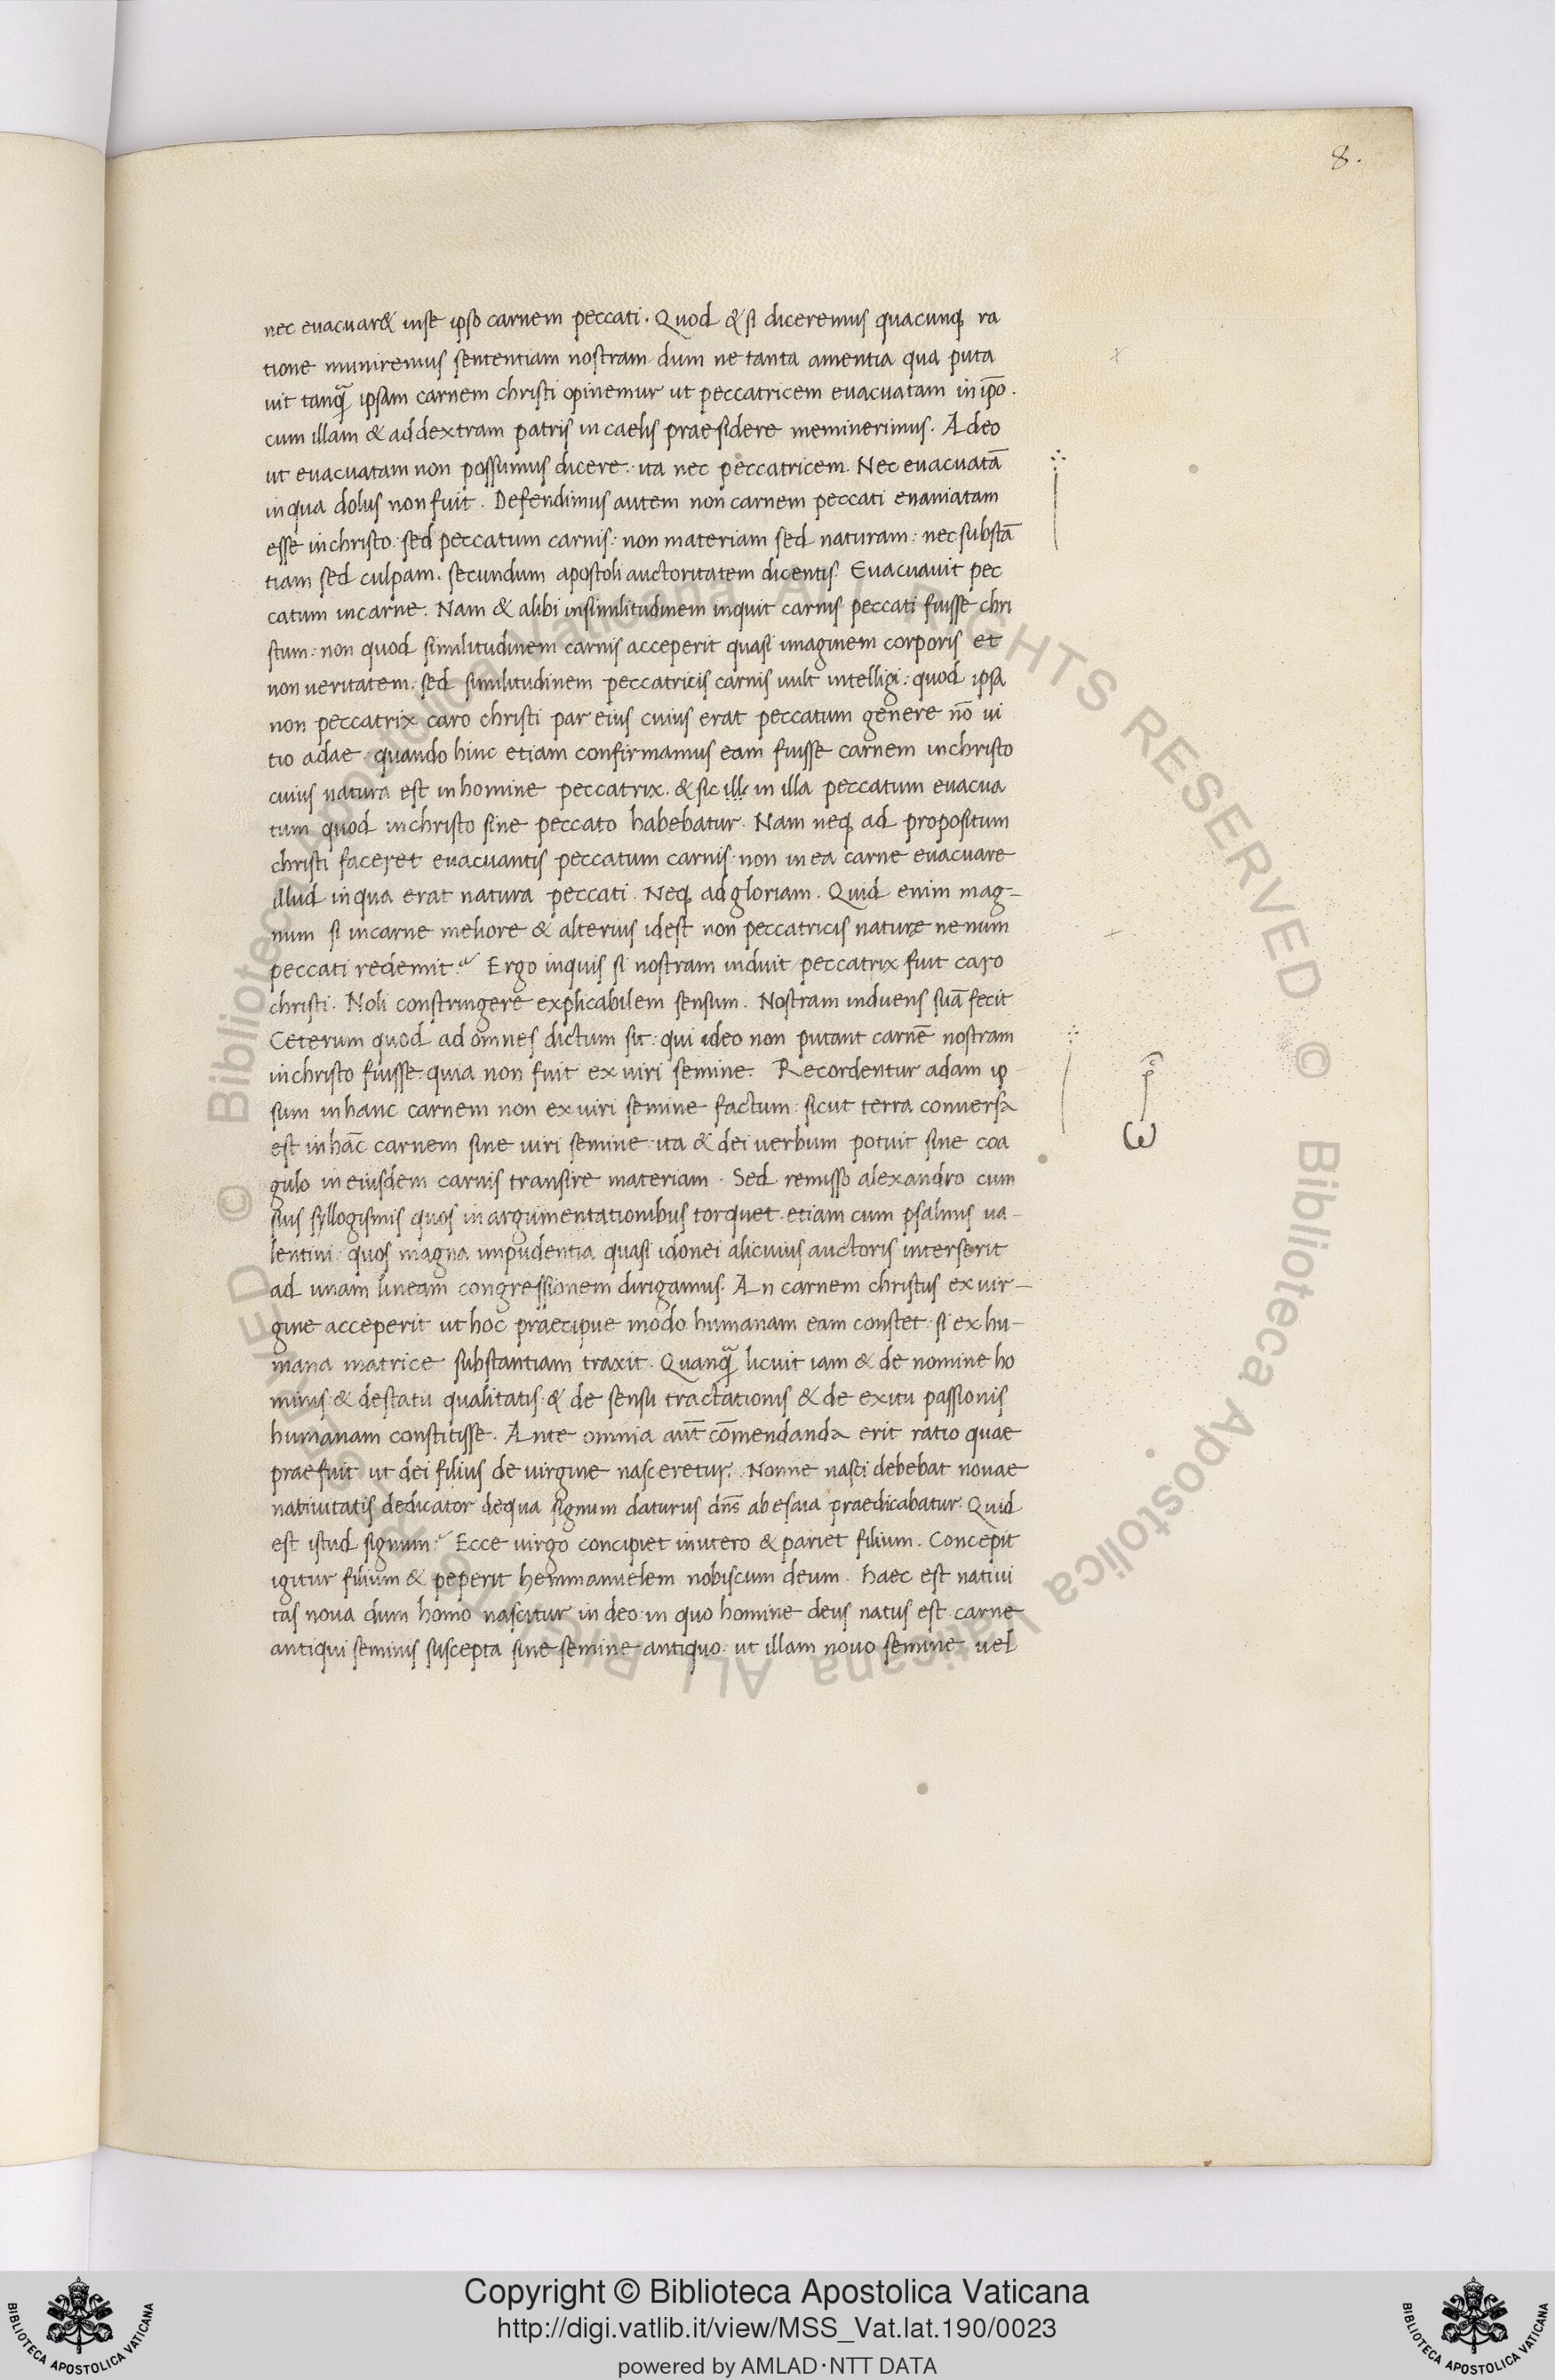 8.
nec euacuar& inse ipso carnem peccati. Quod & si diceremus quacunq ra
tione muniremus sententiam nostram dum ne tanta amentia qua puta
uit tanq̃ ipsam carnem christi opinemur ut peccatricem euacuatam in ip̄o.
cum illam & ad dextram patris in caelis praesidere meminerimus. Adeo
ut euacuatam non possumus dicere: ita nec peccatricem. Nec euacuatā
in qua dolus non fuit. Defendimus autem non carnem peccati enaniatam
esse in christo: sed peccatum carnis: non materiam sed naturam: nec substā
tiam sed culpam. secundum apostoli auctoritatem dicentis: Euacuauit pec
catum in carne. Nam & alibi in similitudinem inquit carnis peccati fuisse chri
stum: non quod similitudinem carnis acceperit quasi imaginem corporis et
non ueritatem: sed similitudinem peccatricis carnis uult intelligi: quod ipsa
non peccatrix caro christi par eius cuius erat peccatum genere nō ui
tio adae: quando hinc etiam confirmamus eam fuisse carnem in christo
cuius natura est in homine peccatrix. & sic ille in illa peccatum euacua
tum quod in christo sine peccato habebatur. Nam neq ad propositum
christi faceret euacuantis peccatum carnis: non in ea carne euacuare
illud in qua erat natura peccati. Neq ad gloriam. Quid enim mag-
num si in carne meliore & alterius idest non peccatricis nature ne num
peccati redemit? Ergo inquis si nostram induit peccatrix fuit caro
christi. Noli constringere explicabilem sensum. Nostram induens suā fecit
Ceterum quod ad omnes dictum sit: qui ideo non putant carnē nostram
in christo fuisse: quia non fuit ex uiri semine. Recordentur adam ip
sum in hanc carnem non ex uiri semine factum: sicut terra conuersa
est in hāc carnem sine uiri semine: ita & dei uerbum potuit sine coa
gulo in eiusdem carnis transire materiam. Sed remisso alexandro cum
suis syllogismis quos in argumentationibus torquet. etiam cum psalmis ua-
lentini: quos magna impudentia quasi idonei alicuius auctoris interserit
ad unam lineam congressionem dirigamus. An carnem christus ex uir-
gine acceperit ut hoc praecipue modo humanam eam constet: si ex hu-
mana matrice substantiam traxit. Quanq̃ licuit iam & de nomine ho
minis & de statu qualitatis & de sensu tractationis & de exitu passionis
humanam constitisse. Ante omnia aut̄ cōmendanda erit ratio quae
praefuit ut dei filius de uirgine nasceretur. Nonne nasci debebat nouae
natiuitatis dedicator dequa signum daturus dn̄s ab esaia praedicabatur. Quid
est istud signum? Ecce uirgo concipiet in utero & pariet filium. Concepit
igitur filium & peperit hemmanuelem nobiscum deum. haec est natiui
tas noua dum homo nascitur in deo: in quo homine deus natus est. carne
antiqui seminis suscepta sine semine antiquo: ut illam nouo semine uel
Copyright © Biblioteca Apostolica Vaticana
http://digi.vatlib.it/view/MSS_Vat.lat.190/0023
powered by AMLAD·NTT DATA